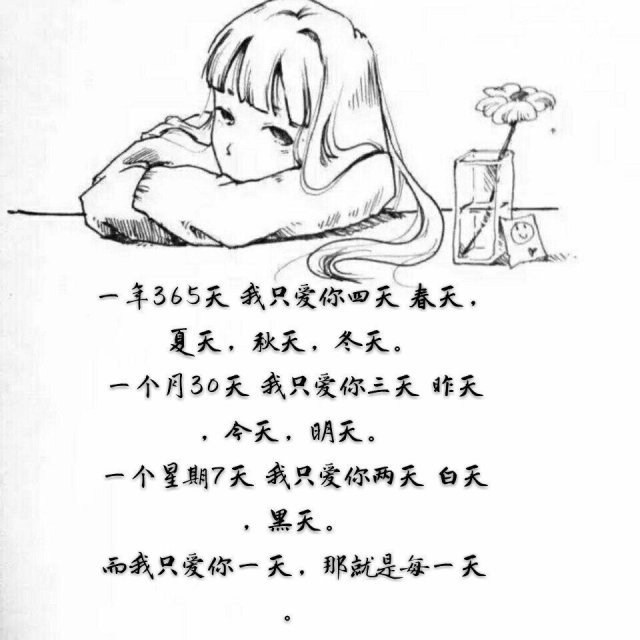 一年365天 我只爱你四天 春天，
夏天，秋天，冬天。
一个月30天 我只爱你三天 昨天
，今天，明天。
一个星期7天 我只爱你两天 白天
，黑天。
而我只爱你一天，那就是每一天
。